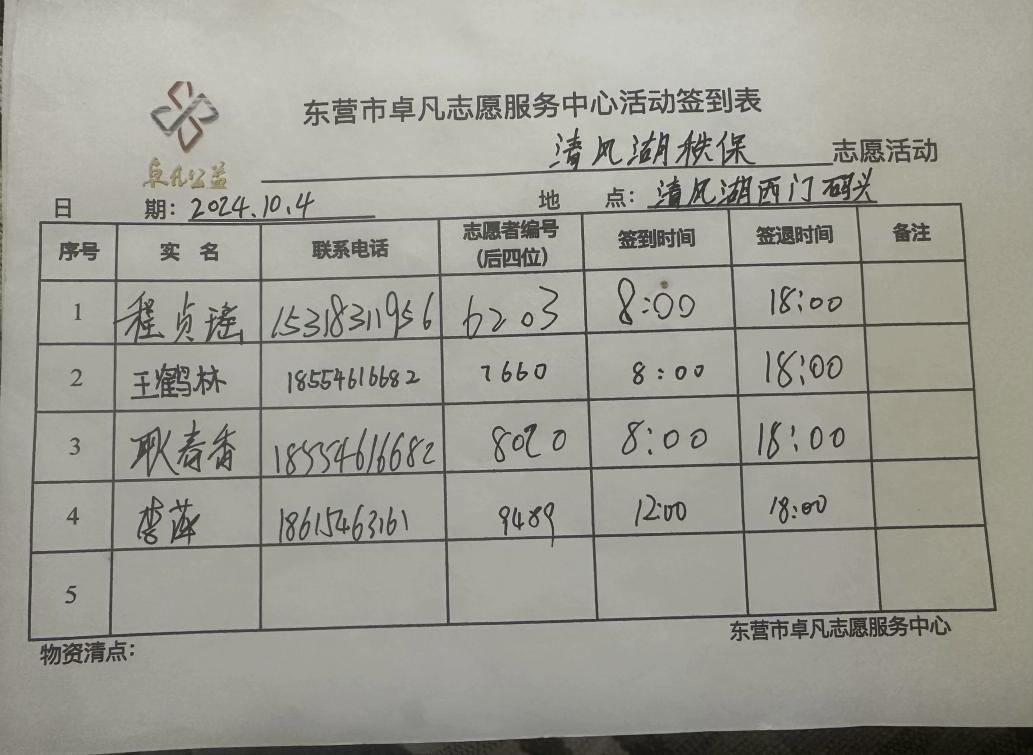 东营市卓凡志愿服务中心活动签到表
卓凡公益
清风湖秩保 志愿活动
日 期：2024.10.4 地 点：清风湖西门码头
序号 实 名 联系电话 志愿者编号（后四位） 签到时间 签退时间 备注
1 程贞瑶 15318311956 6203 8:00 18:00
2 王鹤林 18554616682 7660 8:00 18:00
3 耿春香 18554616682 8020 8:00 18:00
4 李萍 18615463161 9489 12:00 18:00
5
东营市卓凡志愿服务中心
物资清点：